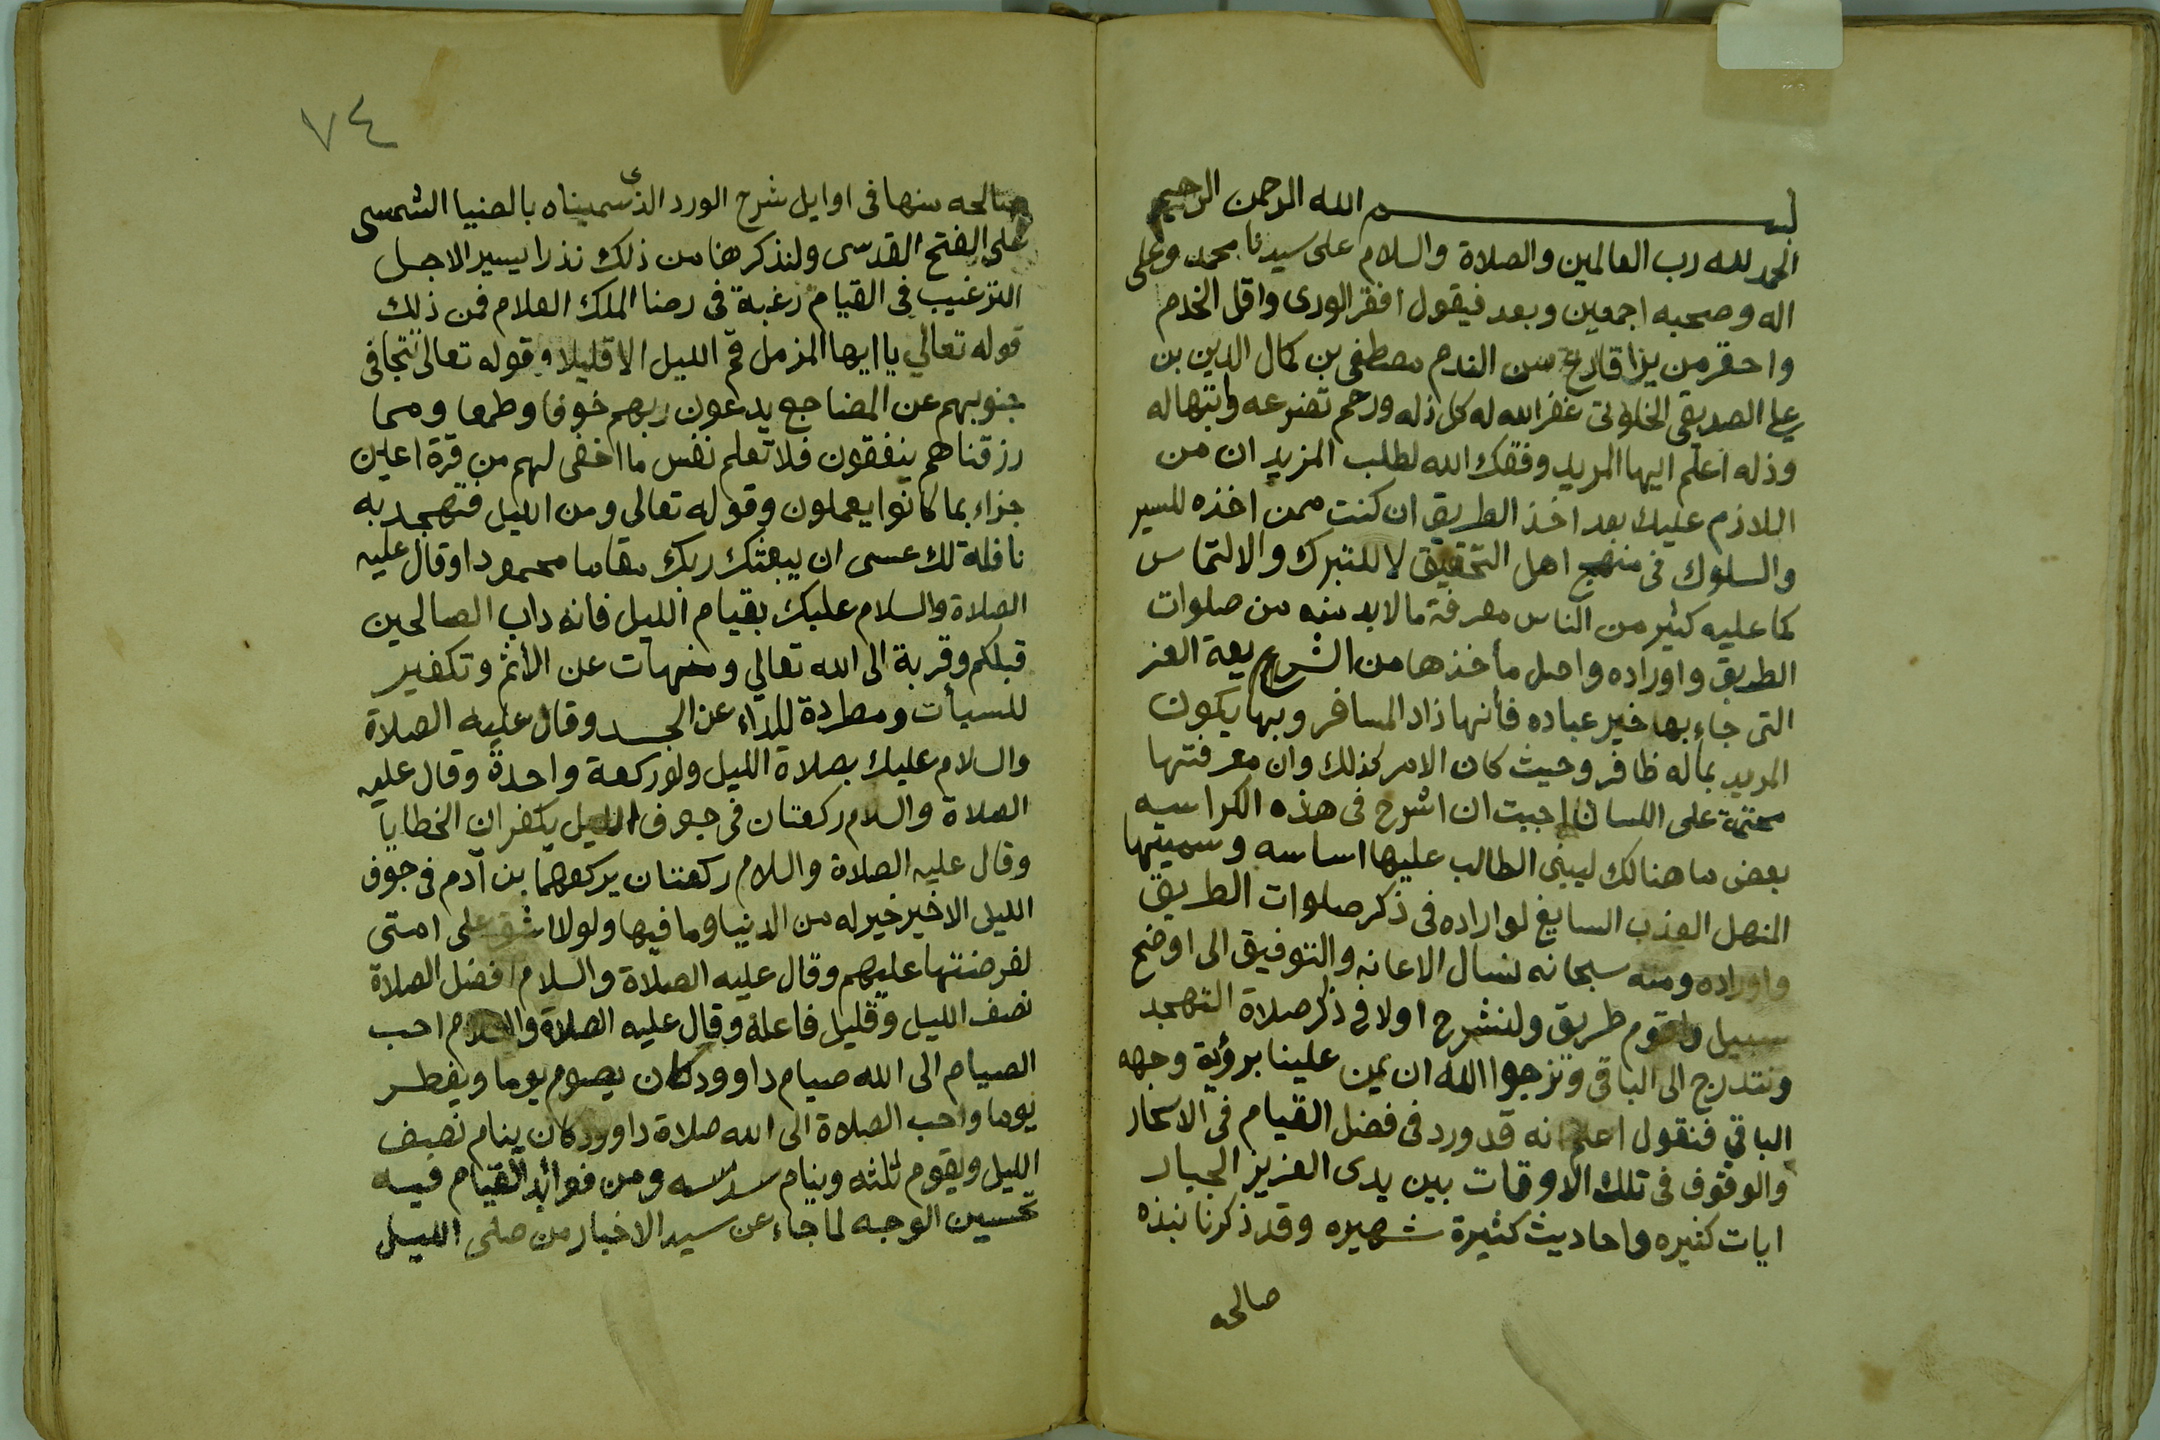 بســـــــم الله الرحمن الرحيم
الحمد لله رب العالمين والصلاة والسلام على سيدنا محمد وعلى
اله وصحبه اجمعين وبعد فيقول افقر الورى واقل الخدم
واحقر من يرا قارع سن الندم مصطفى بن كمال الدين بن
علي الصديقي الخلوتى غفر الله له كل ذله ورحم تضرعه وابتهاله
وذله اعلم ايها المريد وفقك الله لطلب المزيد ان من
اللازم عليك بعد اخذ الطريق ان كنت ممن اخذه للسير
والسلوك فى منهج اهل التحقيق لا للتبرك والالتماس
كما عليه كثير من الناس معرفة ما لابد منه من صلوات
الطريق واوراده واصل مأخذها من الشريعة الغر
التى جاء بها خير عباده فأنها زاد المسافر وبها يكون
المريد بماله ظافر وحيث كان الامر كذلك وان معرفتها
محتمة على اللسان احببت ان اشرح فى هذه الكراسه
بعض ما هنالك ليبنى الطالب عليها اساسه وسميتها
المنهل العذب السايغ لوراده فى ذكر صلوات الطريق
واوراده ومنه سبحانه نسال الاعانه والتوفيق الى اوضح
سبيل واقوم طريق ولنشرح اولا فى ذكر صلاة التهجد
ونتدرج الى الباقى ونرجوا الله ان يمن علينا برؤية وجهه
الباقى فنقول اعلم انه قد ورد فى فضل القيام فى الاسحار
والوقوف فى تلك الاوقات بين يدى العزيز الجبار
ايات كثيره واحاديث كثيرة شهيره وقد ذكرنا نبذه
صالحه
٧٤
صالحه منها فى اوايل شرح الورد الذى سميناه بالضيا الشمسى
على الفتح القدسى ولنذكر هنا من ذلك نذرا يسير الاجل
الترغيب فى القيام رغبة فى رضا الملك العلام فمن ذلك
قوله تعالي يا ايها المزمل قم الليل الا قليلا وقوله تعالى تتجافى
جنوبهم عن المضاجع يدعون ربهم خوفا وطمعا ومما
رزقناهم ينفقون فلا تعلم نفس ما اخفى لهم من قرة اعين
جزاء بما كانوا يعملون وقوله تعالى ومن الليل فتهجد به
نافلة لك عسى ان يبعثك ربك مقاما محمودا وقال عليه
الصلاة والسلام عليك بقيام الليل فانه داب الصالحين
قبلكم وقربة الى الله تعالي ومنهات عن الأثم وتكفير
للسيأت ومطردة للداء عن الجسد وقال عليه الصلاة
والسلام عليك بصلاة الليل ولو ركعة واحدة وقال عليه
الصلاة والسلام ركعتان فى جوف الليل يكفران الخطايا
وقال عليه الصلاة والسلام ركعتان يركعهما بن آدم فى جوف
الليل الاخير خير له من الدنيا وما فيها ولولا اشق على امتى
لفرضتها عليهم وقال عليه الصلاة والسلام افضل الصلاة
نصف الليل وقليل فاعله وقال عليه الصلاة والسلام احب
الصيام الى الله صيام داوود كان يصوم يوما ويفطر
يوما واحب الصلاة الى الله صلاة داوود كان ينام نصف
الليل ويقوم ثلثه وينام سدسه ومن فوائد القيام فيه
تحسين الوجه لما جاء عن سيد الاخيار من صلى الليل